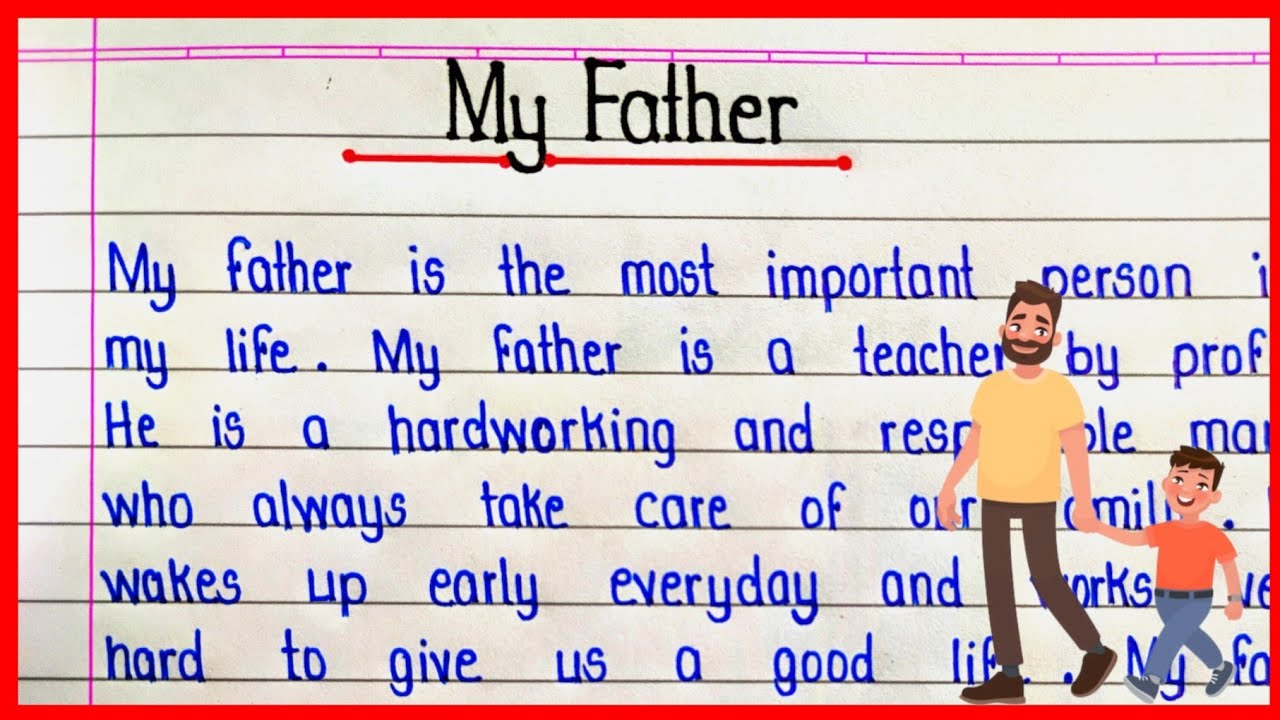 My Father
My father is the most important person
my life. My father is a teacher by prof
He is a hardworking and
who always take care of our family.
wakes up early everyday and works
hard to give us a good life. My fa